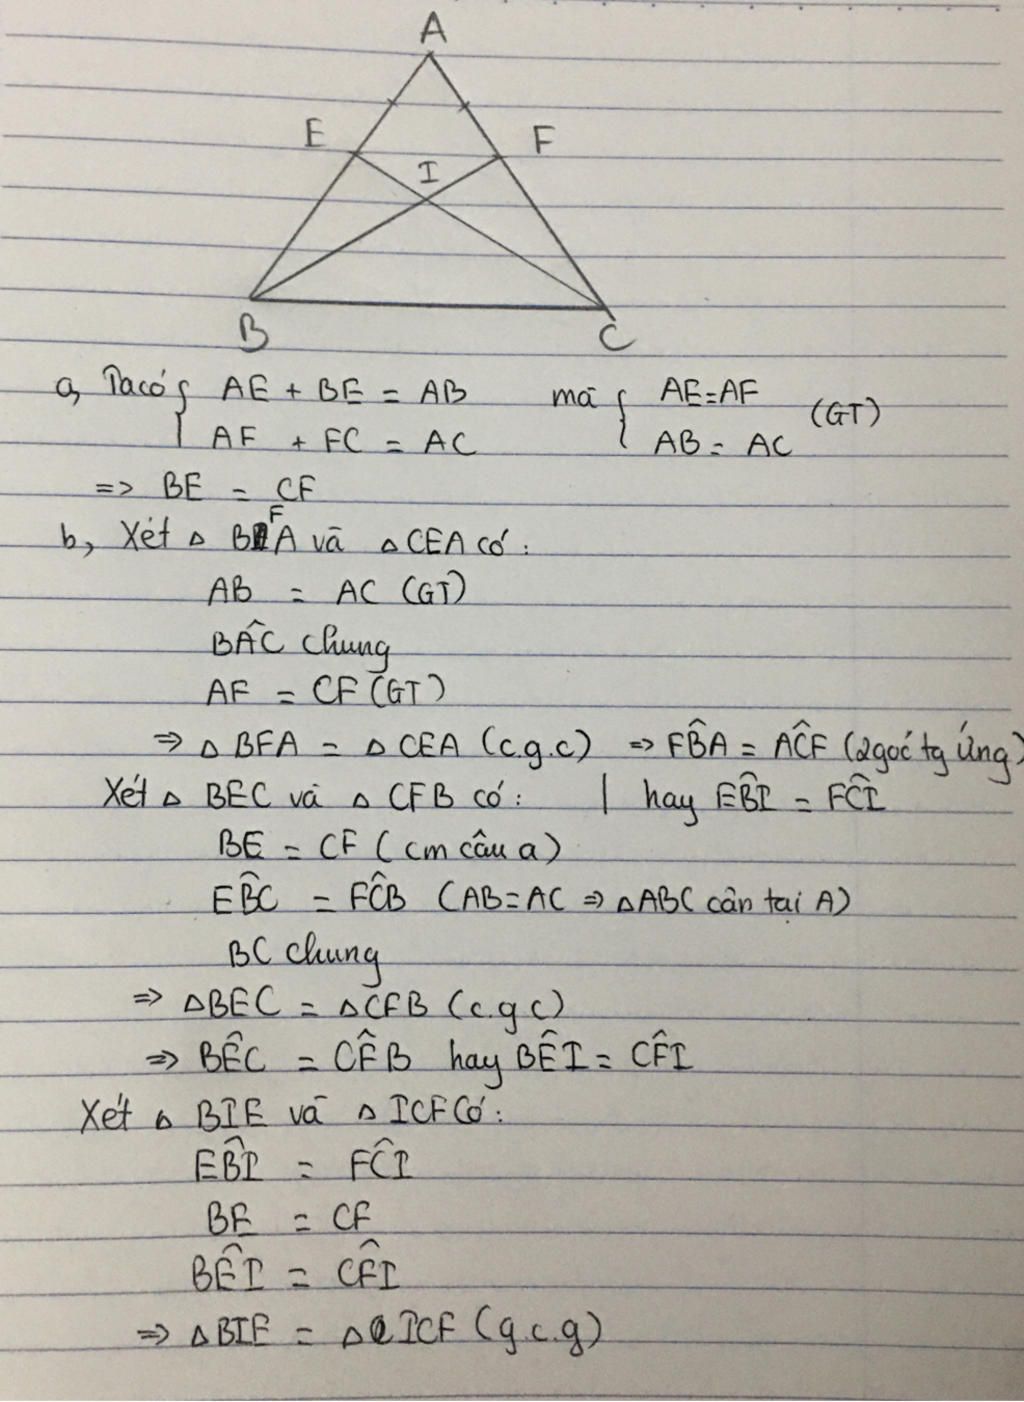 A
E F
I
B C
a, Ta có { AE + BE = AB mà { AE = AF (GT)
AF + FC = AC AB = AC
=> BE = CF
b, Xét △ BFA và △ CEA có :
AB = AC (GT)
BÂC chung
AF = CF (GT)
=> △ BFA = △ CEA (c.g.c) => FB̂A = AĈF (2 góc tg ứng)
Xét △ BEC và △ CFB có : | hay EB̂I = FĈI
BE = CF ( cm câu a)
EB̂C = FĈB (AB=AC => △ABC cân tại A)
BC chung
=> △BEC = △CFB (c.g c)
=> BÊC = CF̂B hay BÊI = CF̂I
Xét △ BIE và △ ICF Có :
EB̂I = FĈI
BE = CF
BÊI = CF̂I
=> △BIE = △ ICF (g.c.g)